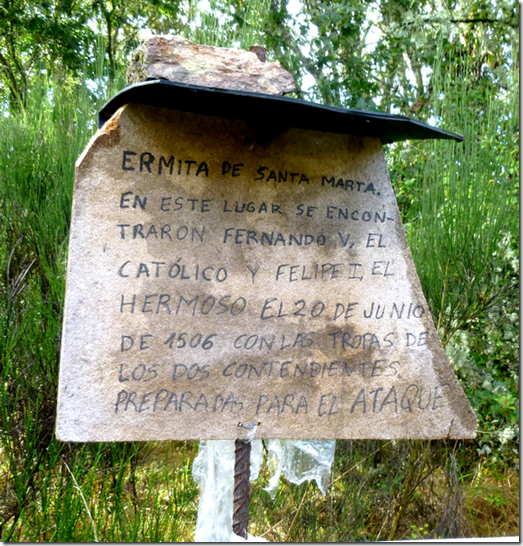 ERMITA DE SANTA MARTA.
EN ESTE LUGAR SE ENCON-
TRARON FERNANDO V, EL
CATÓLICO Y FELIPE I, EL
HERMOSO EL 20 DE JUNIO
DE 1506 CON LAS TROPAS DE
LOS DOS CONTENDIENTES
PREPARADAS PARA EL ATAQUE